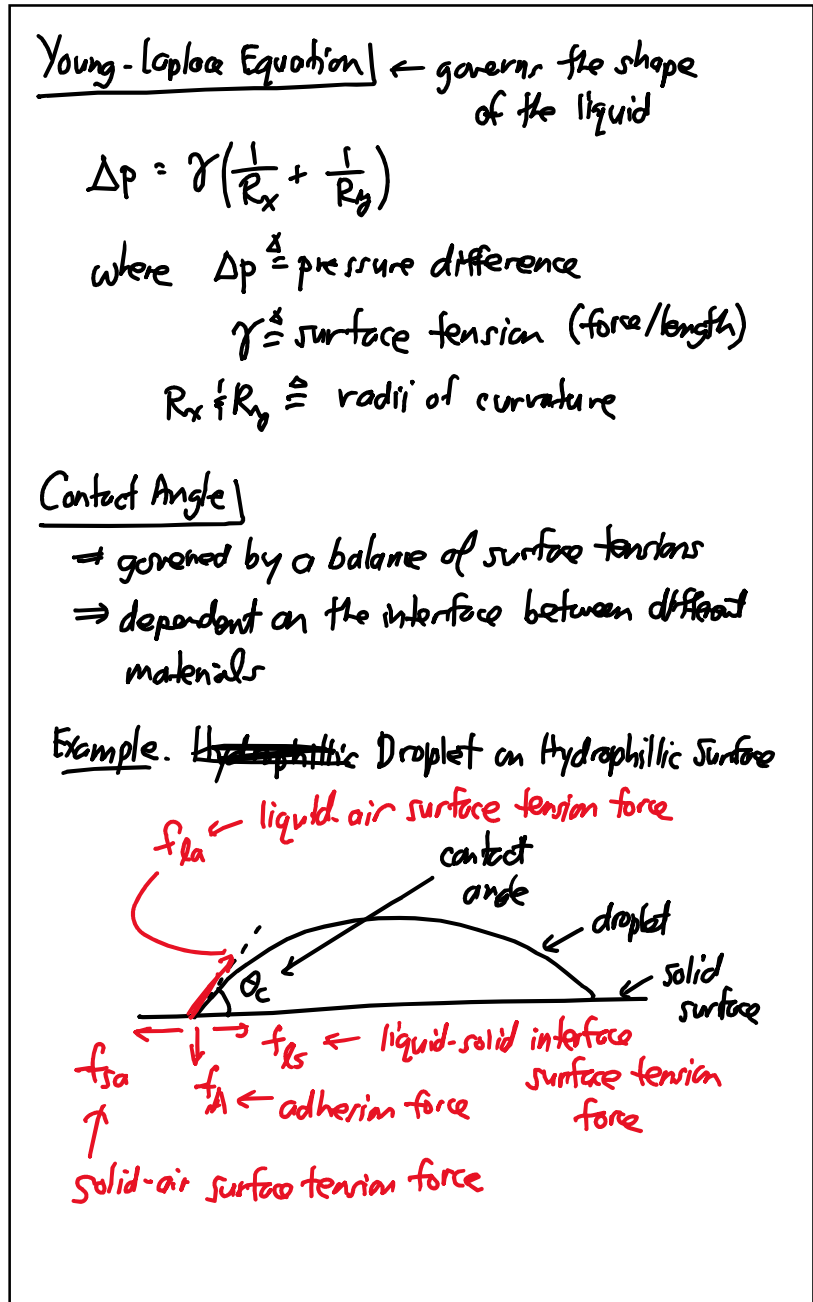 Young-Laplace Equation ← governs the shape
of the liquid
Δp = γ(1/Rx + 1/Ry)
where Δp ≜ pressure difference
γ ≜ surface tension (force/length)
Rx & Ry ≜ radii of curvature
Contact Angle
⇒ governed by a balance of surface tensions
⇒ dependent on the interface between different
materials
Example. Droplet on Hydrophillic Surface
fla ← liquid-air surface tension force
contact
angle
droplet
θc
solid
surface
fsa
fls ← liquid-solid interface
surface tension
force
fA ← adhesion force
solid-air surface tension force